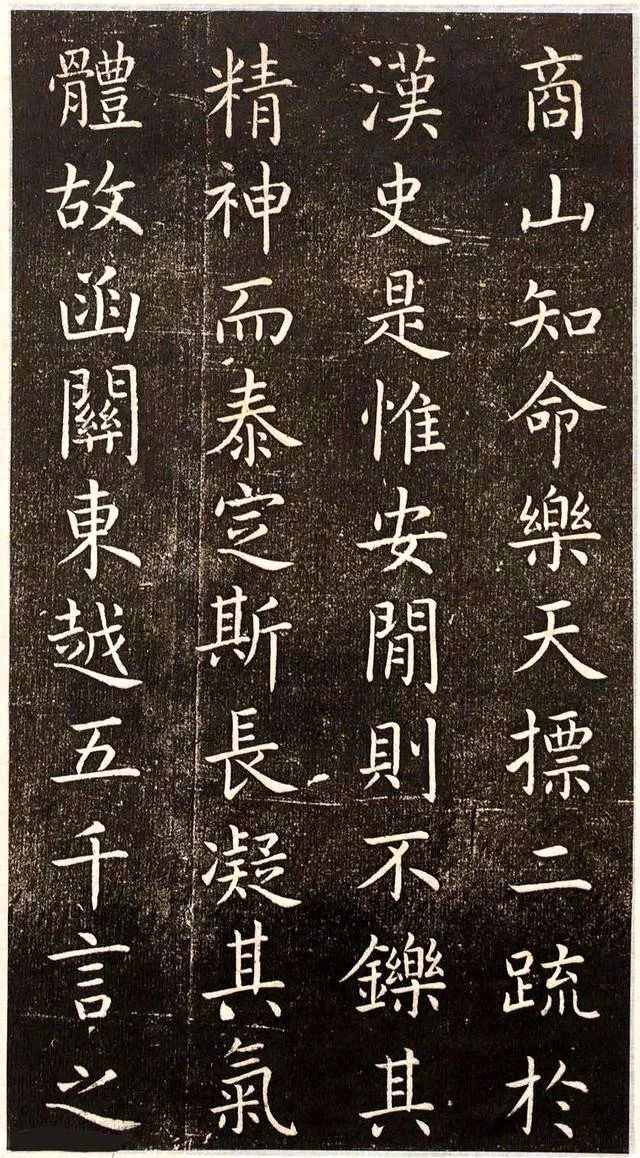 商山知命樂天摽二疏於
漢史是惟安閒則不鑠其
精神而泰定斯長凝其氣
體故函關東越五千言之